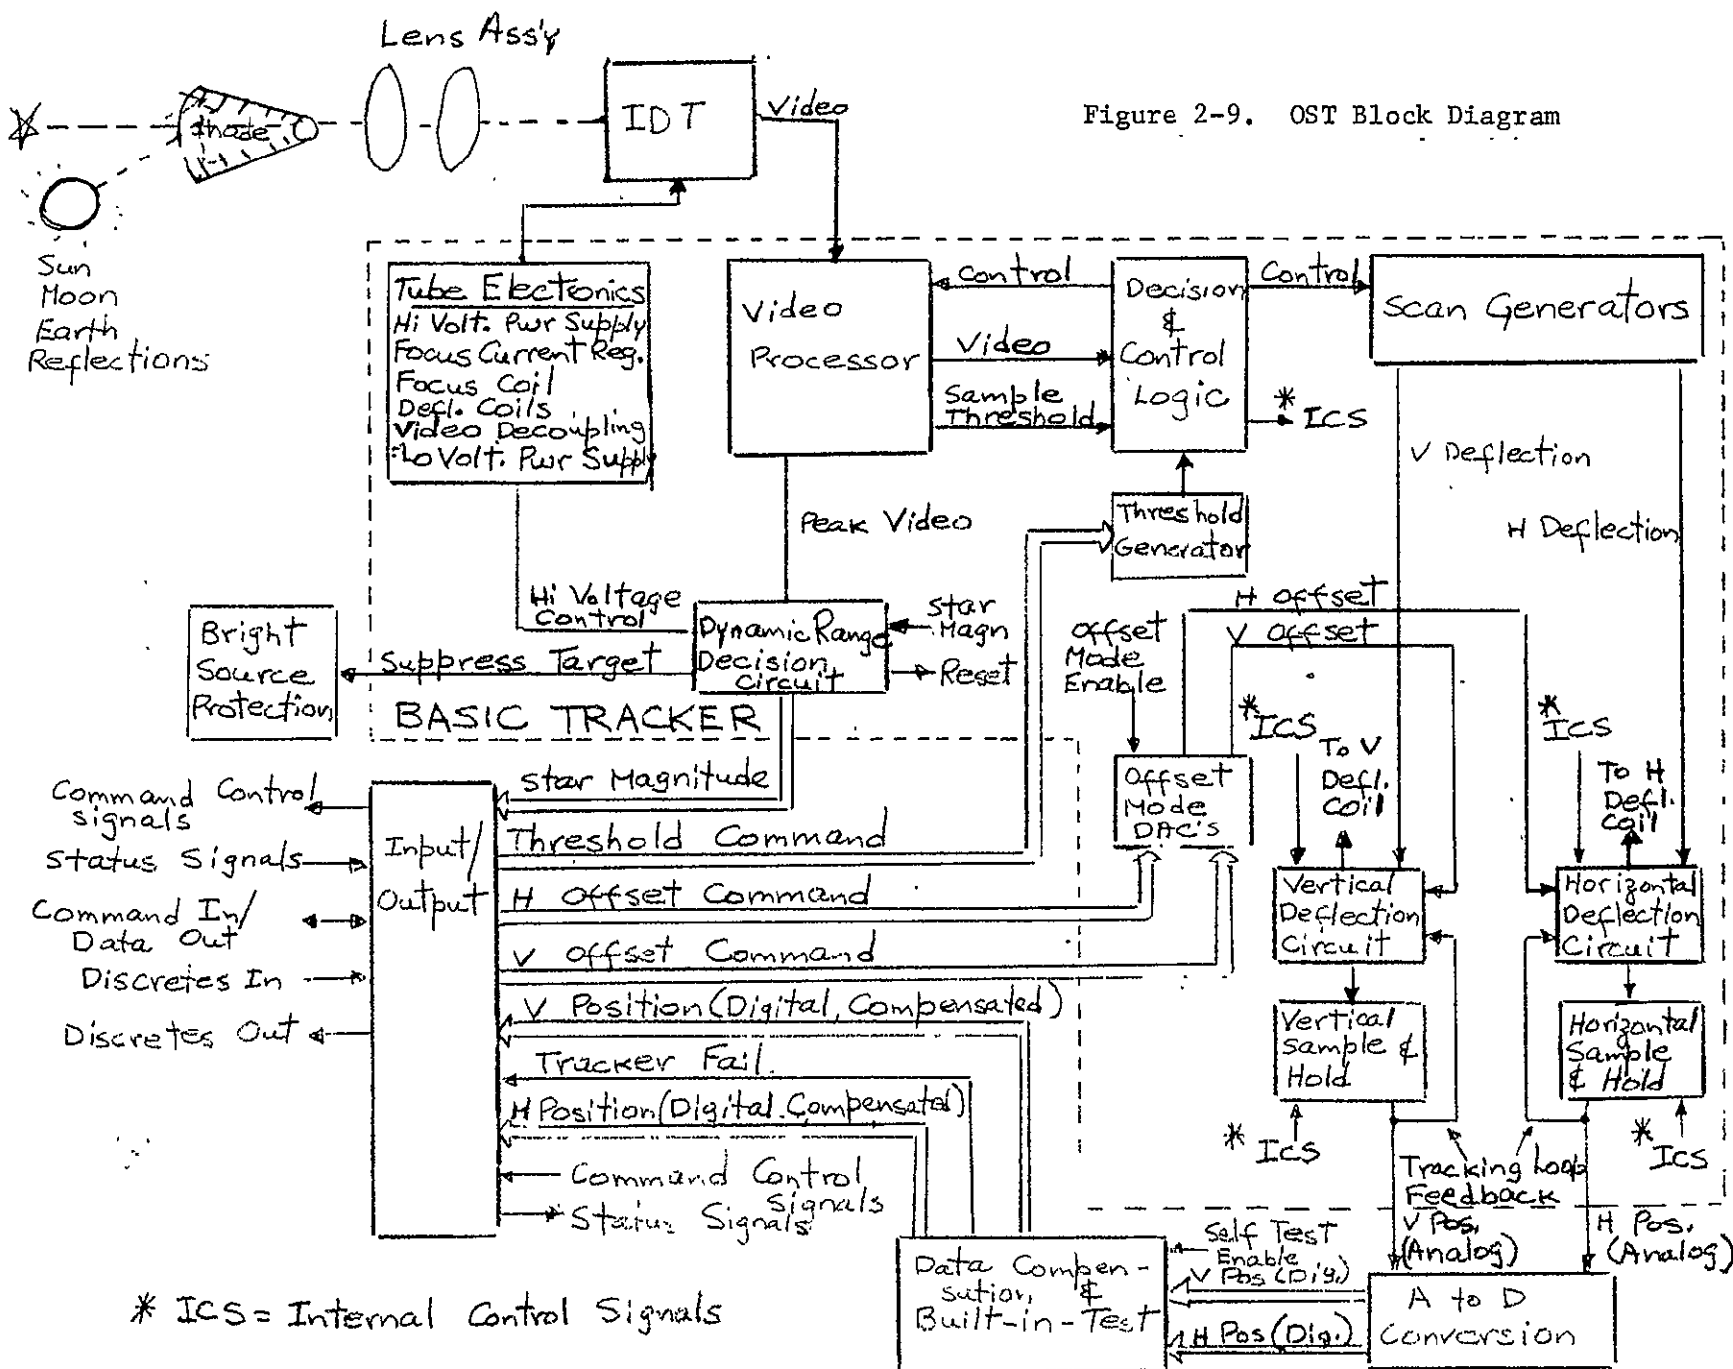 Lens Ass'y
IDT
Video
Figure 2-9. OST Block Diagram
Shade
Sun
Moon
Earth
Reflections
Tube Electronics
Hi Volt. Pwr Supply
Focus Current Reg.
Focus Coil
Defl. Coils
Video Decoupling
Lo Volt. Pwr Supply
Video
Processor
Control
Video
Sample
Threshold
Decision
&
Control
Logic
Control
Scan Generators
* ICS
V Deflection
H Deflection
Threshold
Generator
Peak Video
Hi Voltage
Control
Dynamic Range
Decision
Circuit
Star
Magn
Reset
Suppress Target
Bright
Source
Protection
BASIC TRACKER
Offset
Mode
Enable
H Offset
V Offset
* ICS
To V
Defl.
Coil
* ICS
To H
Defl.
Coil
Offset
Mode
DAC's
Vertical
Deflection
Circuit
Horizontal
Deflection
Circuit
Vertical
Sample &
Hold
Horizontal
Sample
& Hold
* ICS
* ICS
Tracking Loop
Feedback
Command Control
Signals
Status Signals
Command In/
Data Out
Discretes In
Discretes Out
Input/
Output
Star Magnitude
Threshold Command
H Offset Command
V Offset Command
V Position (Digital, Compensated)
Tracker Fail.
H Position (Digital. Compensated)
Command Control
Signals
Status Signals
V Pos.
(Analog)
H Pos.
(Analog)
Self Test
Enable
V Pos (Dig.)
H Pos (Dig.)
Data Compen-
sation, &
Built-in-Test
A to D
Conversion
* ICS = Internal Control Signals